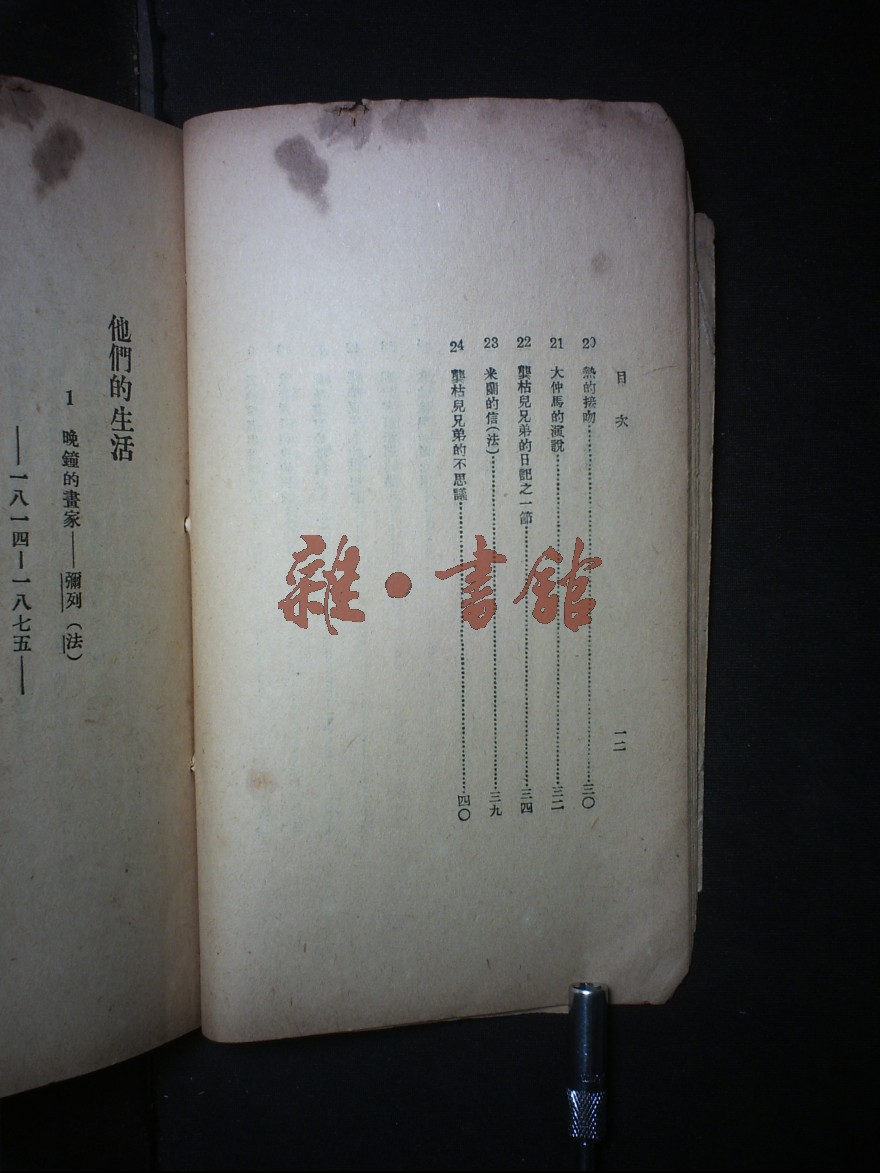 目次
一二
20 熱的接吻……三〇
21 大仲馬的演說……三二
22 龔枯兒兄弟的日記之一節……三四
23 米蘭的信(法)……三九
24 龔枯兒兄弟的不思議……四〇
他們的生活
1 晚鐘的畫家——彌列(法)
——一八一四—一八七五——
雜·書館